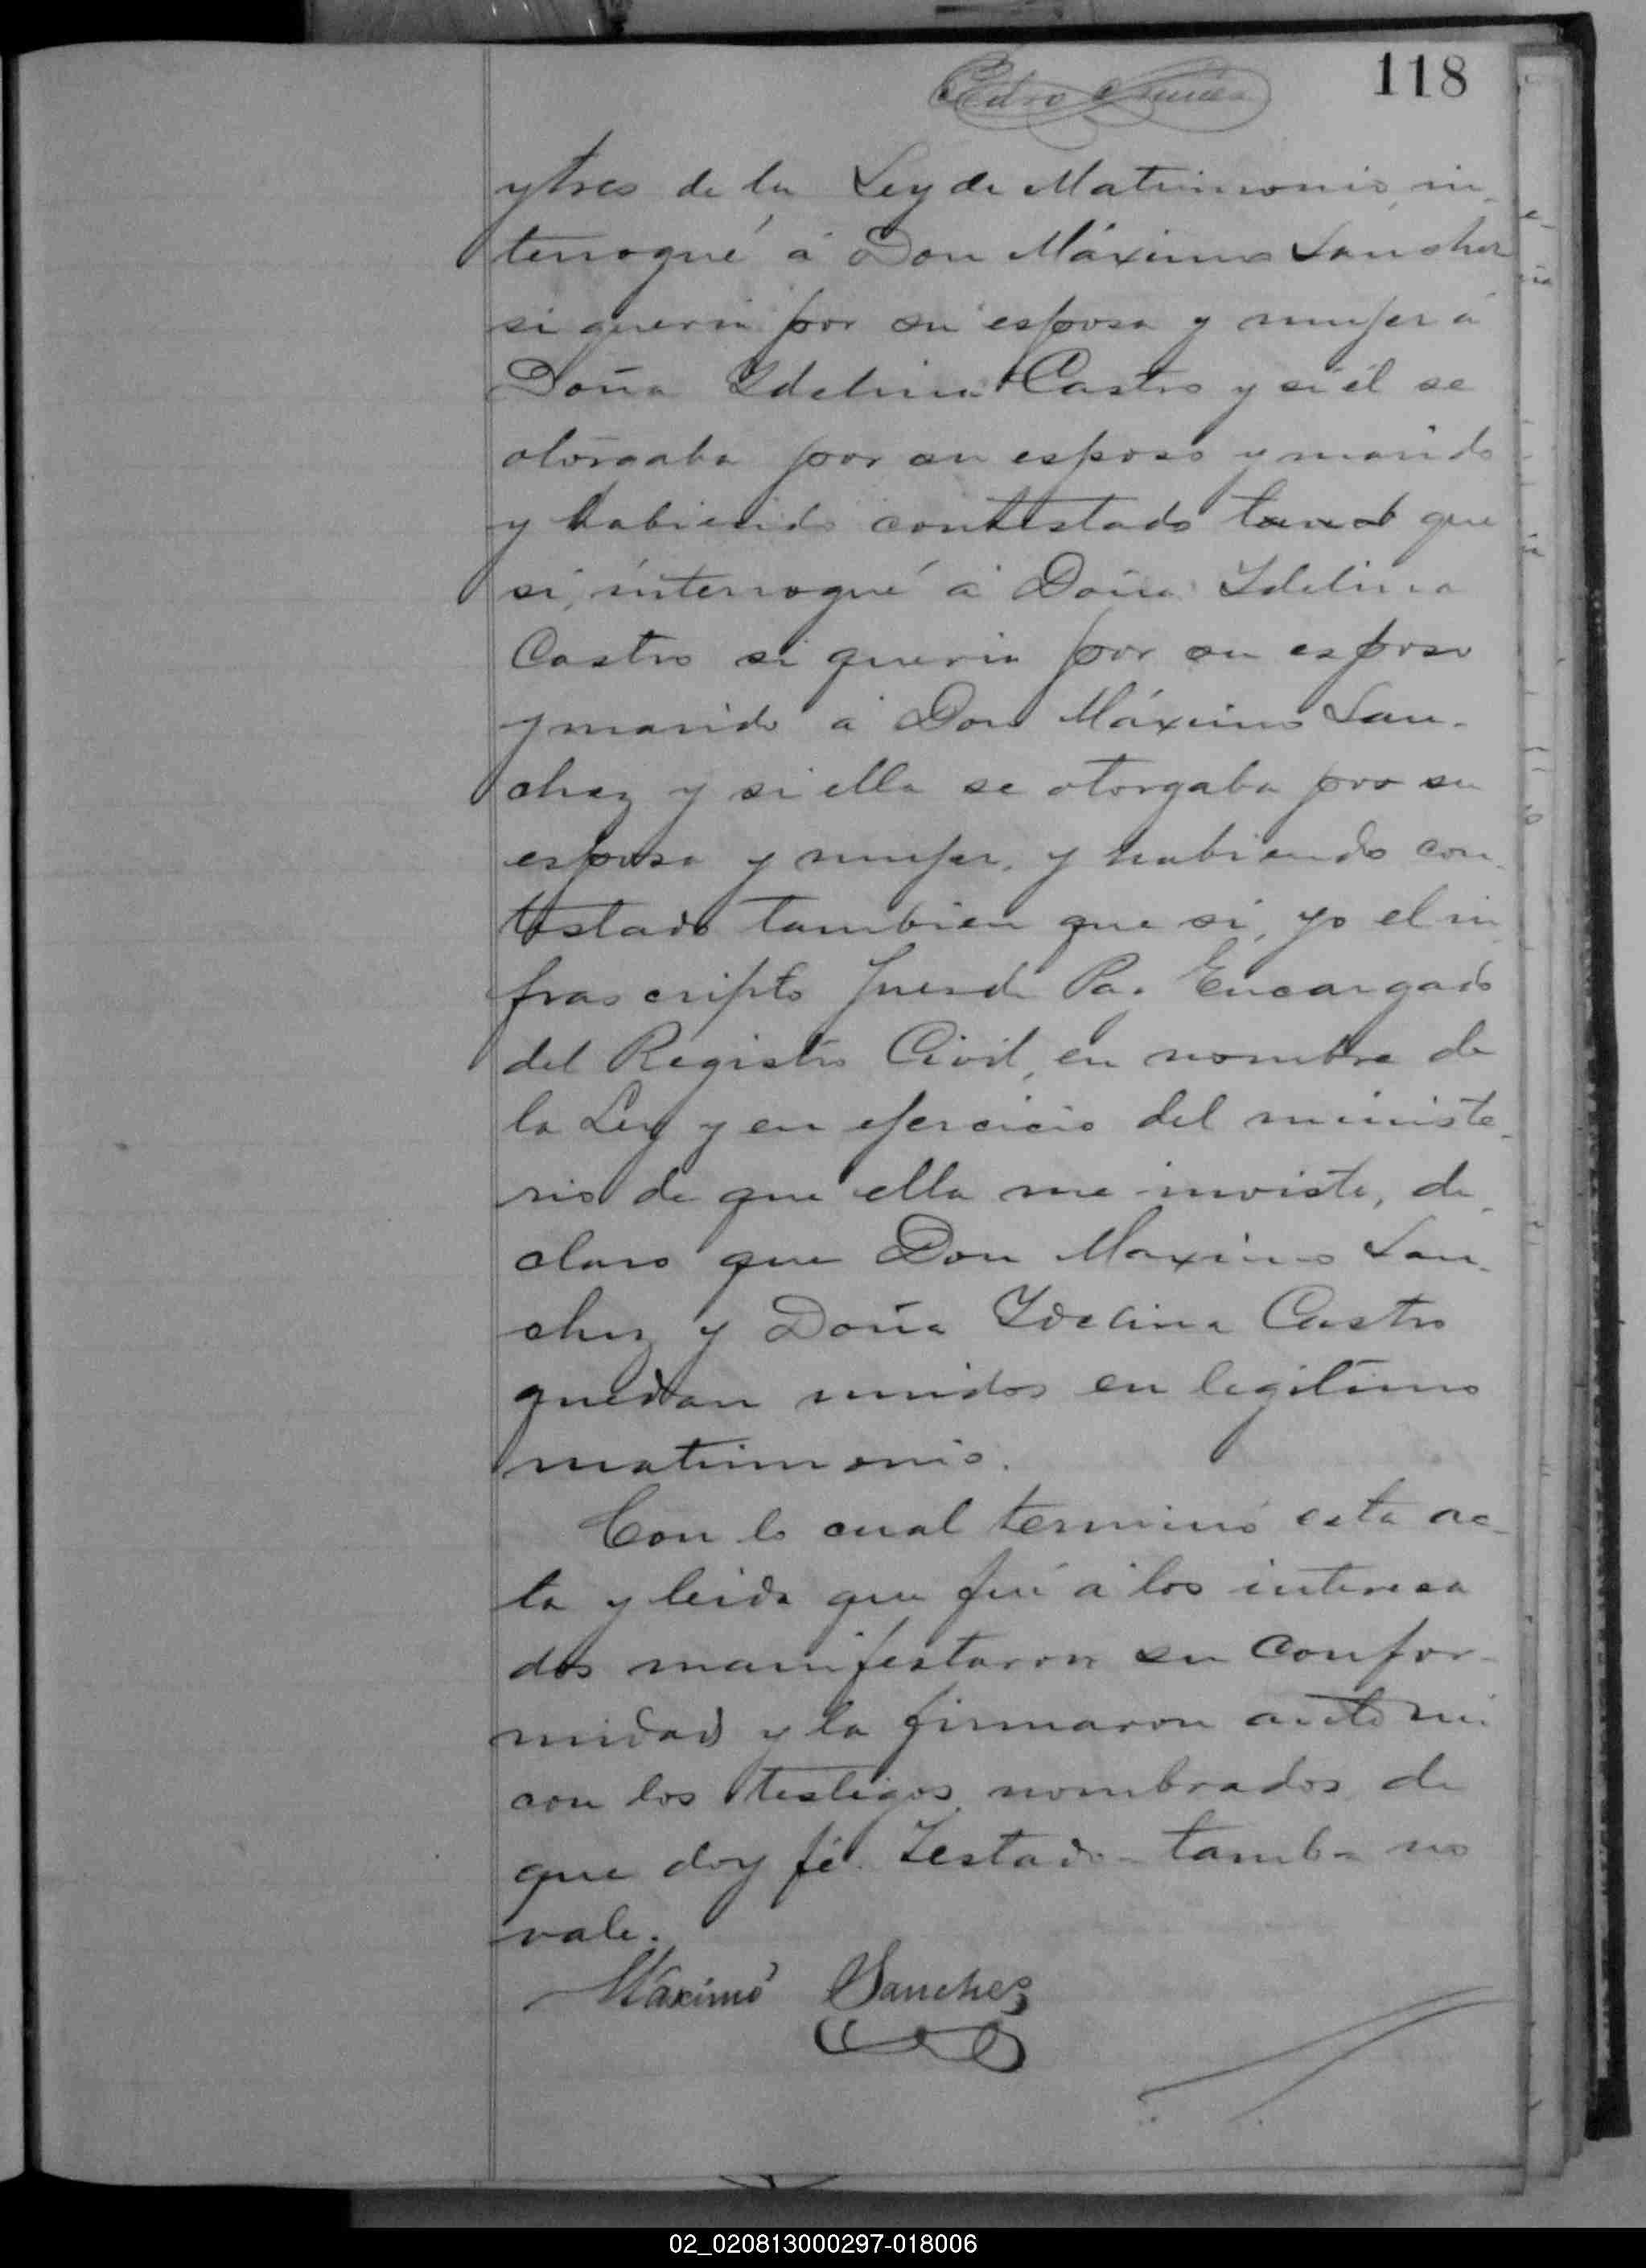 118
Pedro
y tres de la Ley de Matrimonio, in-
terrogué á Don Máximo Sanchez
si queria por su esposa y mujer á
Doña Idelina Castro y si él se
otorgaba por su esposo y marido
y habiendo contestado tamb que
si, interrogué á Doña Idelina
Castro si queria por su esposo
y marido á Don Máximo San-
chez y si ella se otorgaba por su
esposa y mujer, y habiendo con-
testado tambien que si, yo el in
frascripto Juez de Paz Encargado
del Registro Civil, en nombre de
la Ley y en ejercicio del ministe-
rio de que ella me inviste, de-
claro que Don Maximo San-
chez y Doña Idelina Castro
quedan unidos en legítimo
matrimonio.
Con lo cual terminó esta ac-
ta y leida que fué á los interesa
dos manifestaron su confor-
midad y la firmaron ante mi
con los testigos nombrados, de
que doy fé. Testado - tamb - no
vale.
Máximo Sanchez
02_020813000297-018006